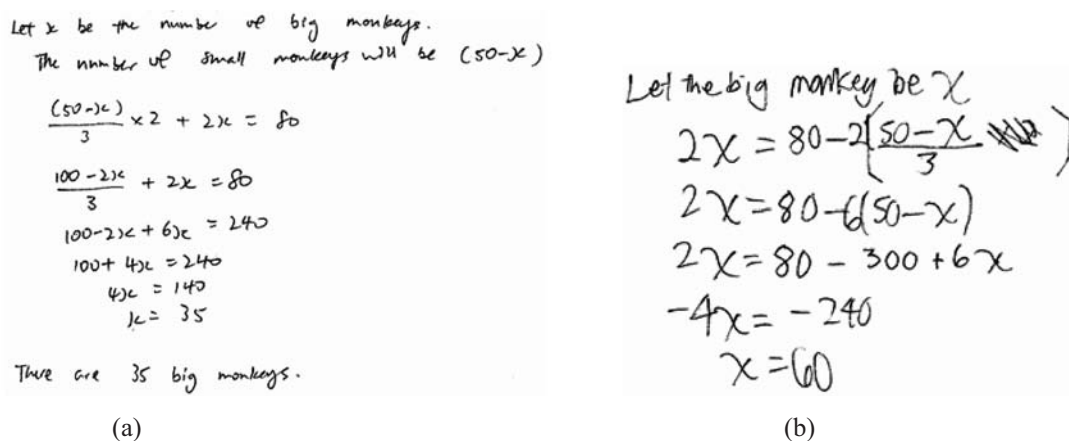 Let x be the number of big monkeys.
The number of small monkeys will be (50-x)
(50-x)/3 ×2 + 2x = 80
(100-2x)/3 + 2x = 80
100-2x + 6x = 240
100+ 4x = 240
4x = 140
x = 35
There are 35 big monkeys.
(a)
Let the big monkey be x
2x = 80-2((50-x)/3)
2x = 80-6(50-x)
2x = 80 - 300 + 6x
-4x = -240
x = 60
(b)